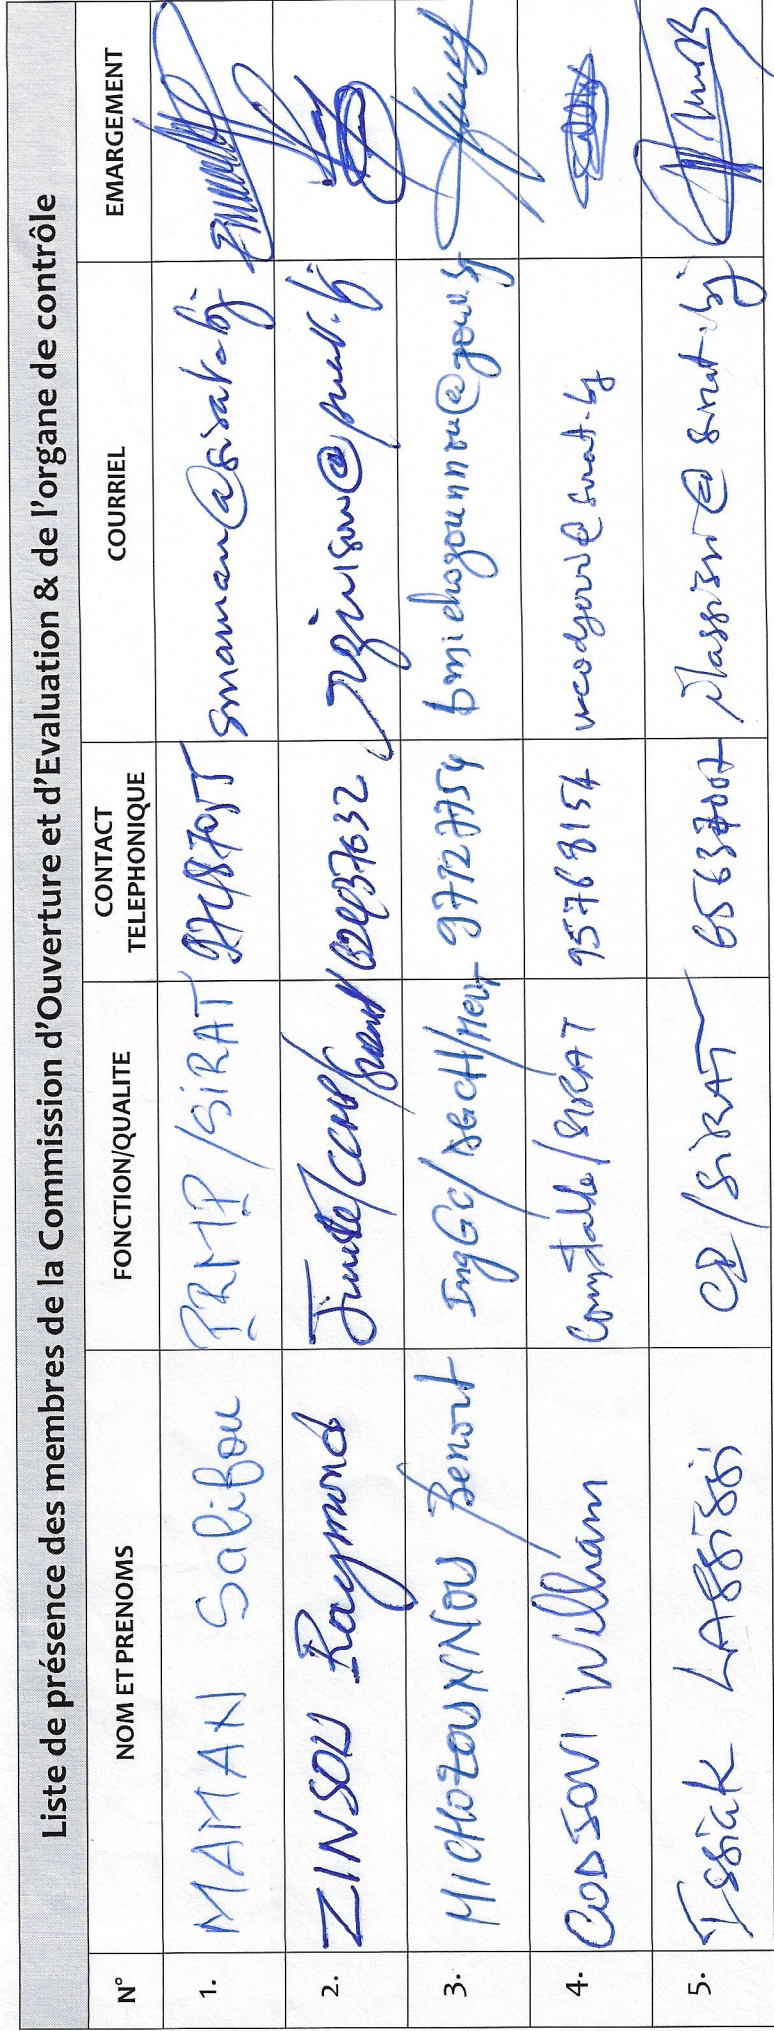 Liste de présence des membres de la Commission d'Ouverture et d'Evaluation & de l'organe de contrôle
N° NOM ET PRENOMS FONCTION/QUALITE CONTACT TELEPHONIQUE COURRIEL EMARGEMENT
1. MAMAN Salifou PRMP/SiRAT smaman@sirat.bj
2. ZINSOU Raymond Juriste/CCMP/
3. MICHOZOUNNOU Benoit IngGC/ 97727754 bmichozounnou@gouv.bj
4. CODJOVI William Comptable/SIRAT 95768154 wcodjovi@sirat.bj
5. Issiak LASSISSI CP/SiRAT 65637007